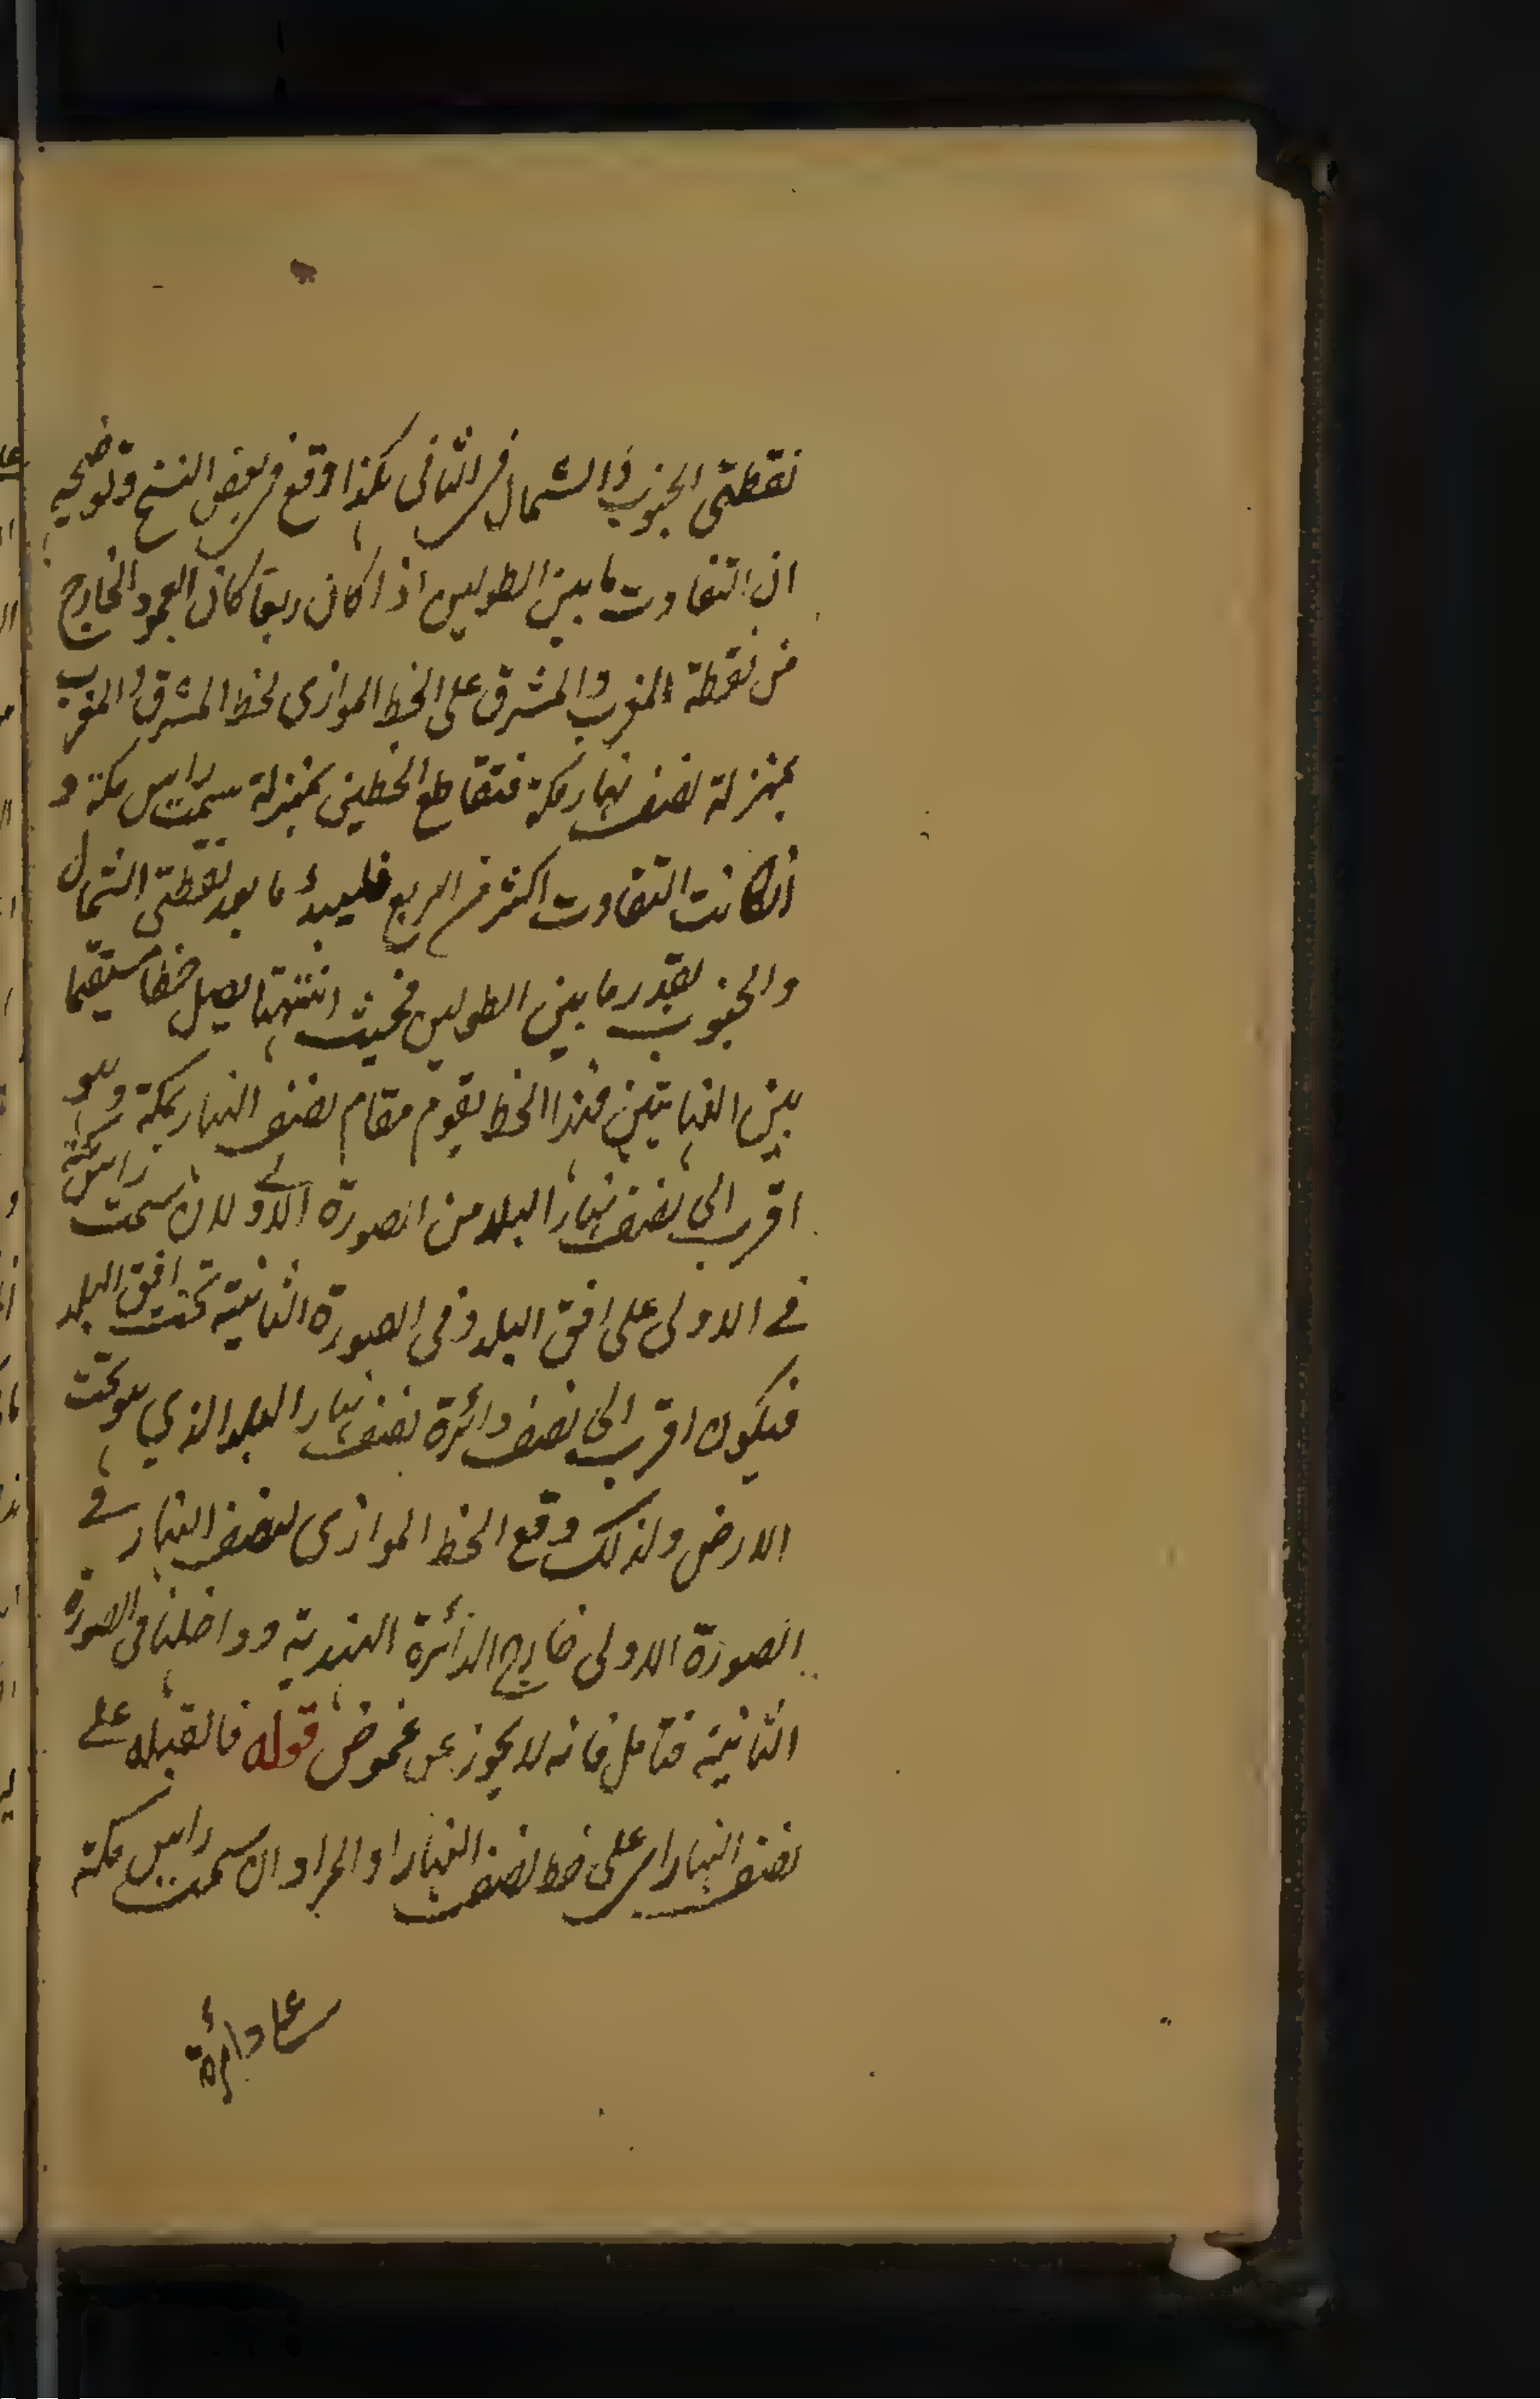 نقطتى الجنوب والشمال فى الثانى هكذا وقع فى بعض النسخ وتوضيحه
ان التفاوت ما بين الطولين اذا كان ربعا كان العمود الخارج
من نقطة المغرب والمشرق على الخط الموازى لخط المشرق والمغرب
بمنزلة نصف نهار مكة فتقاطع الخطين بمنزلة سمت راس مكة و
انكانت التفاوت اكثر من الربع فليعد ما بعد نقطتى الشمال
والجنوب بقدر ما بين الطولين فحيث انتهتا يصل خطا مستقيما
بين النهايتين فهذا الخط يقوم مقام نصف النهار بمكة وهو
اقرب الى نصف نهار البلد من الصورة الاولى لان سمت راس مكة
فى الاولى على افق البلد وفى الصورة الثانية تحت افق البلد
فيكون اقرب الى نصف دائرة نصف نهار البلد الذي هو تحت
الارض ولذلك وقع الخط الموازى لنصف النهار فى
الصورة الاولى خارج الدائرة الهندية وداخلها فى الصورة
الثانية فتامل فانه لا يخ عن غموض قوله فالقبله على
نصف النهار اى على خط نصف النهار او المراد ان سمت راس مكة
على دائرة